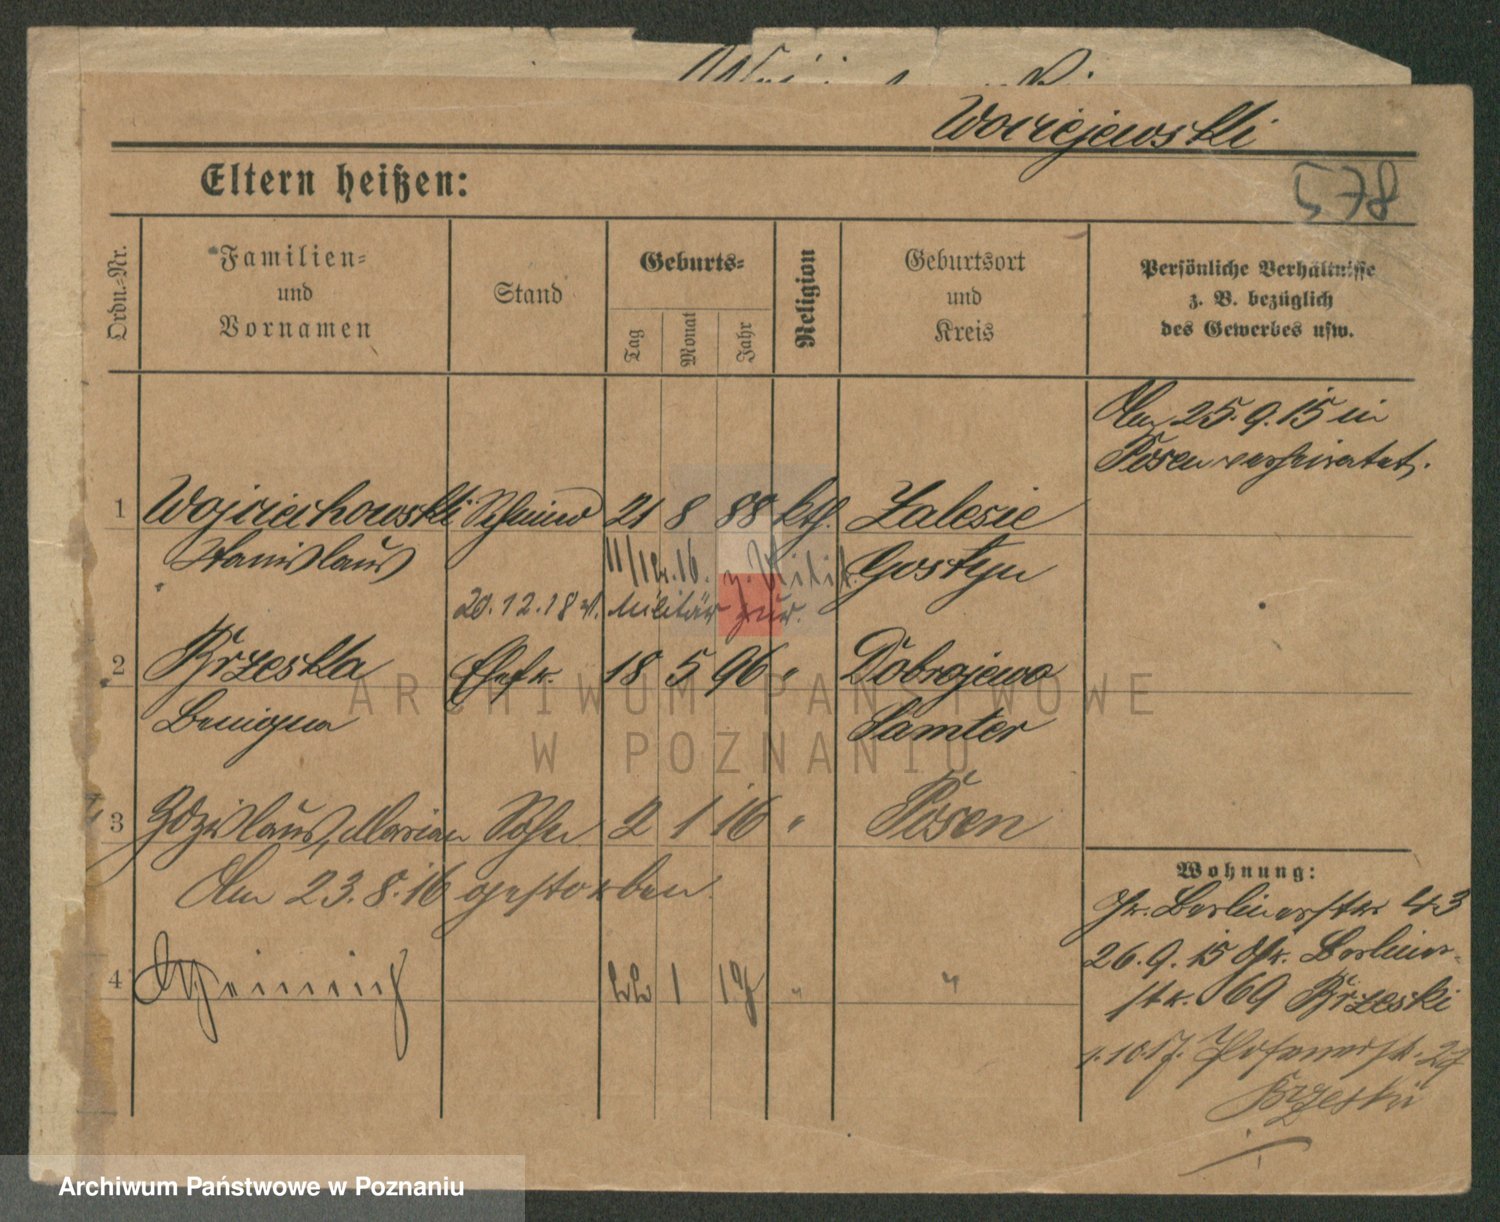 Wojciejewski
578
Eltern heißen:
Ordn.-Nr.
Familien-
und
Vornamen
Stand
Geburts-
Tag
Monat
Jahr
Religion
Geburtsort
und
Kreis
Persönliche Verhältnisse
z. B. bezüglich
des Gewerbes usw.
Am 25.9.15 in
Posen verheiratet.
1 Wojciechowski 21 8 88 kth. Zalesie
Stanislaus 16. z. Milit. Gostyn
20.12.18 v. Militär zur.
2 Brzeska Ehefr. 18 5 96 " Dobrojewo
Benigna Samter
3 Zdzislaus, Marian Sohn 2 1 16 " Posen
Am 23.8.16 gestorben.
4 Heinrich 22 1 18 " "
Wohnung:
Gr. Berlinerstr. 43
26.9.15 Gr. Berliner-
str. 69 Brzeski
1.10.17. Posenerstr. 27
Brzeski
ARCHIWUM PAŃSTWOWE
W POZNANIU
Archiwum Państwowe w Poznaniu